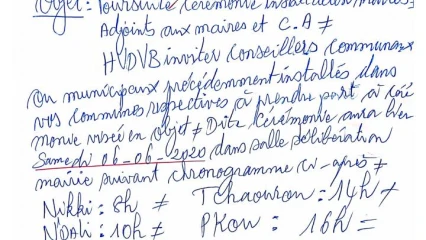 Objet : Poursuite Cérémonie installation Maires =
Adjoints aux maires et C.A ≠
HVDVB inviter Conseillers Communaux
ou municipaux précédemment installés dans
vos communes respectives à prendre part à Céré
monie visée en objet ≠ Dite Cérémonie aura lieu
Samedi 06-06-2020 dans salle délibération
mairie suivant chronogramme ci-après ≠
Nikki : 8h ≠ Tchaourou = 14h ≠
N'Dali : 10h ≠ PKou : 16h =